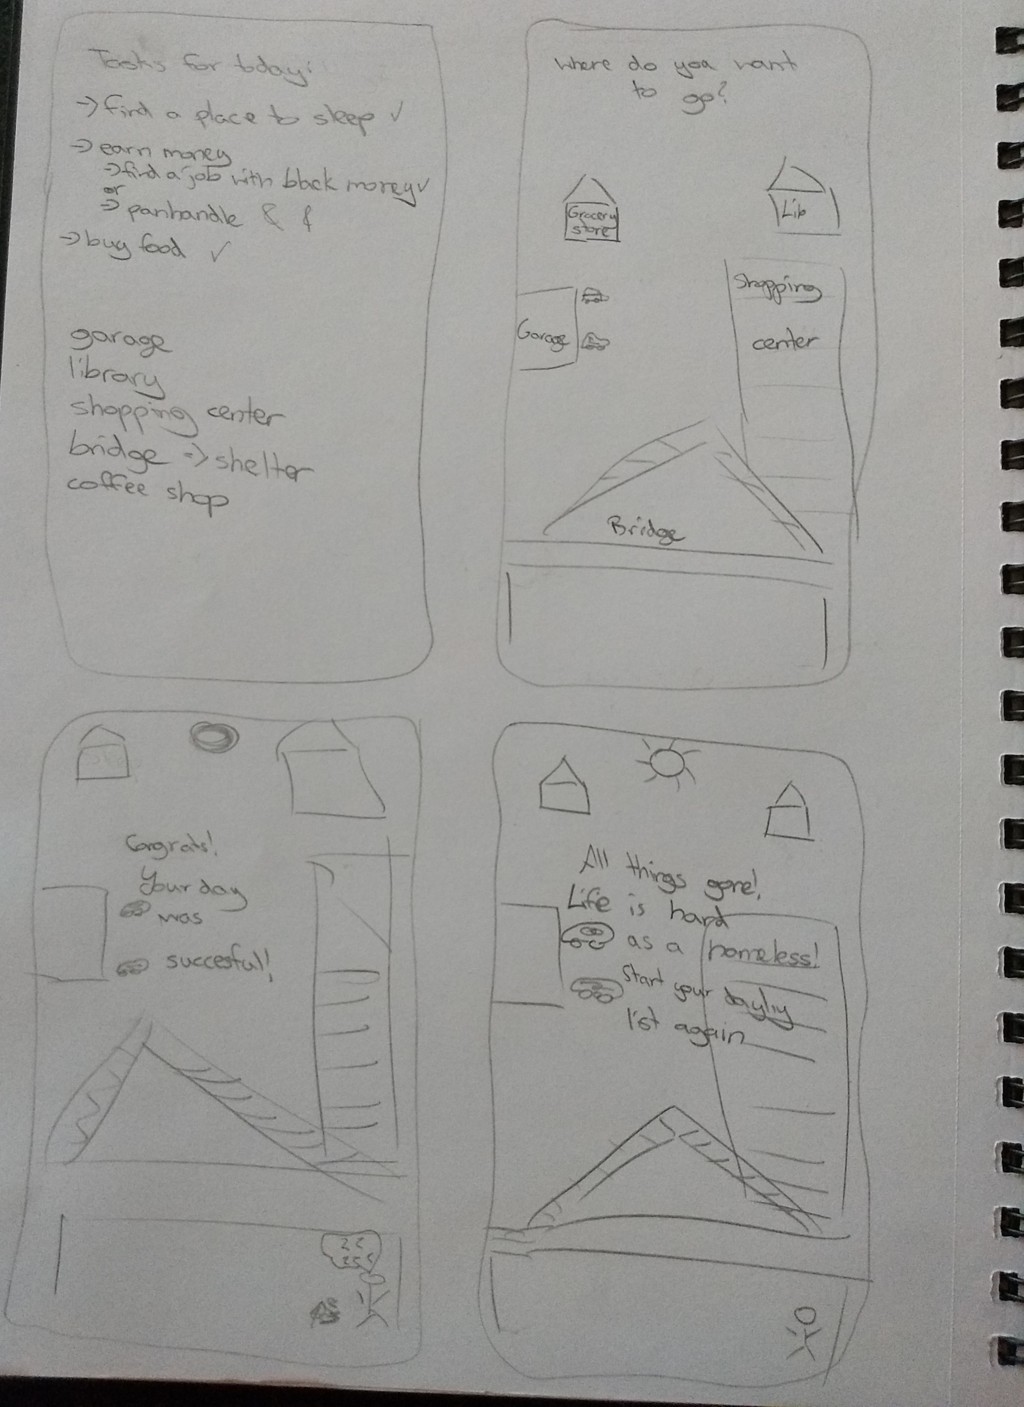 Tasks for today:
-> find a place to sleep ✓
-> earn money
-> find a job with black money ✓
or
-> panhandle
-> buy food ✓
garage
library
shopping center
bridge => shelter
coffee shop
where do you want
to go?
Grocery
store
Lib
Garage
Shopping
center
Bridge
Congrats!
Your day
was
succesful!
All things gone!
Life is hard
as a homeless!
Start your dayliy
list again